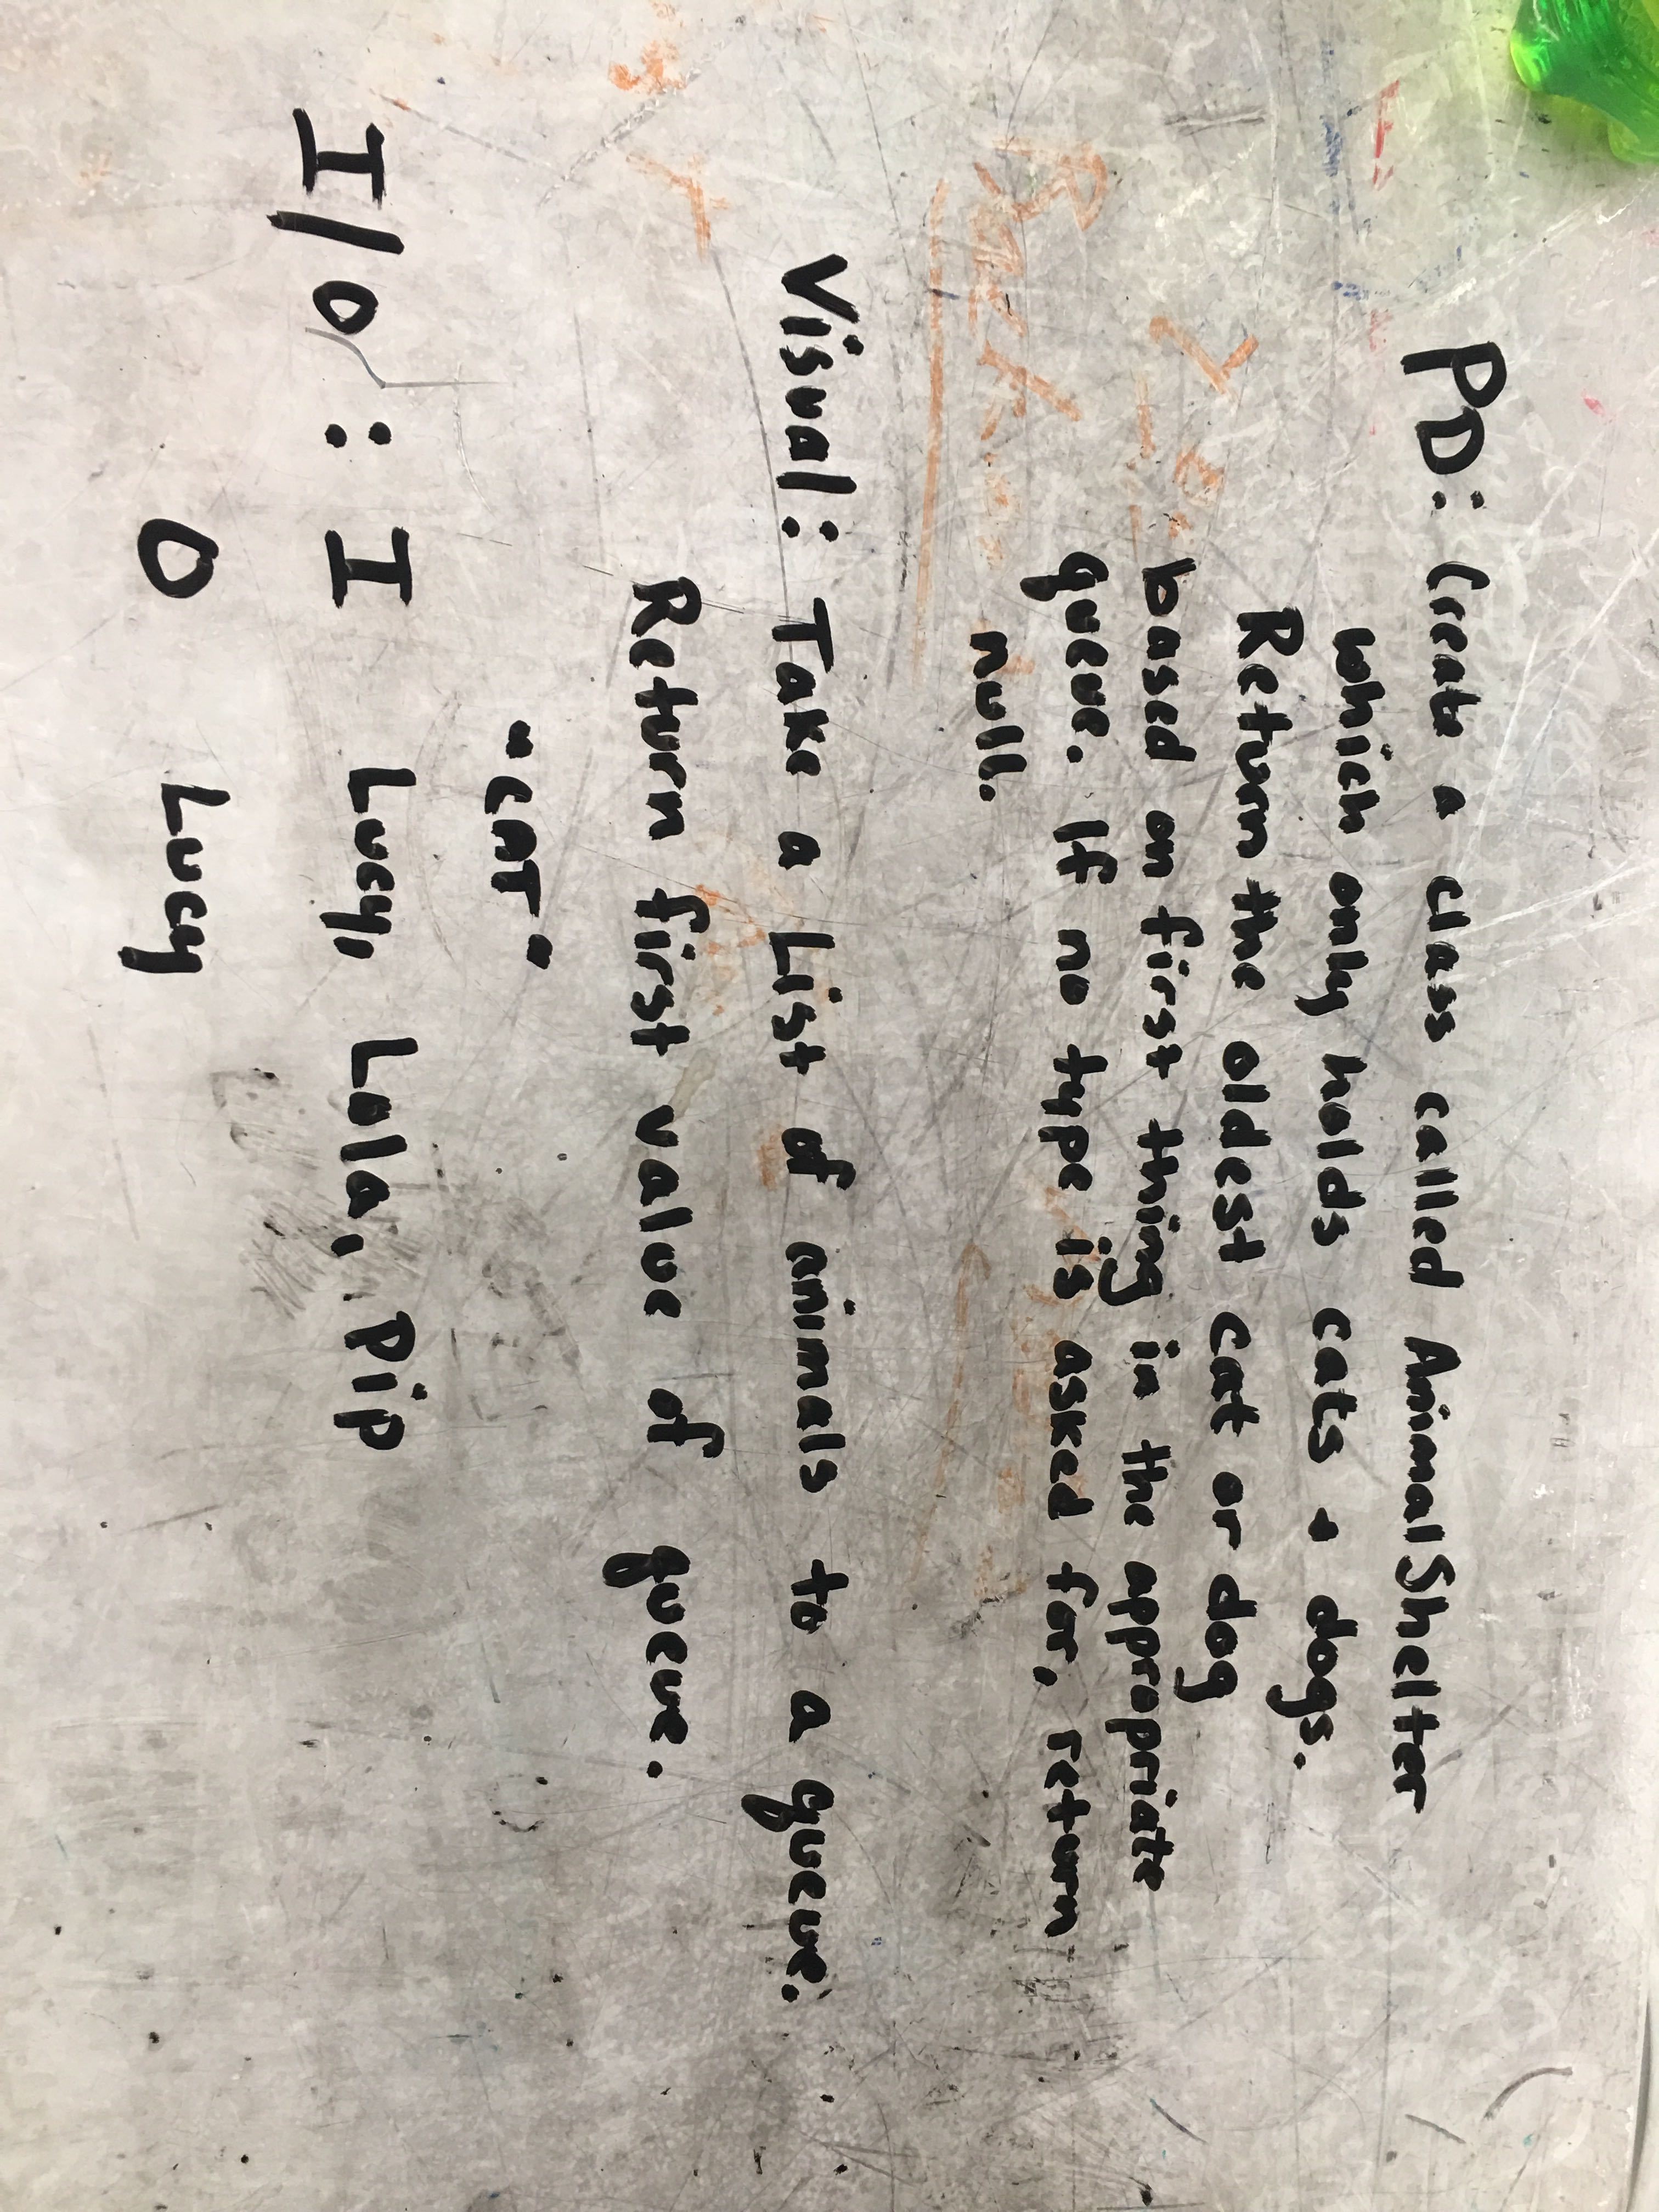 PD: Create a class called AnimalShelter
which only holds cats + dogs.
Return the oldest cat or dog
based on first thing in the appropriate
queue. If no type is asked for, return
null.
Visual: Take a List of animals to a queue.
Return first value of queue.
"CAT"
I/O: I Lucy, Lola, Pip
O Lucy